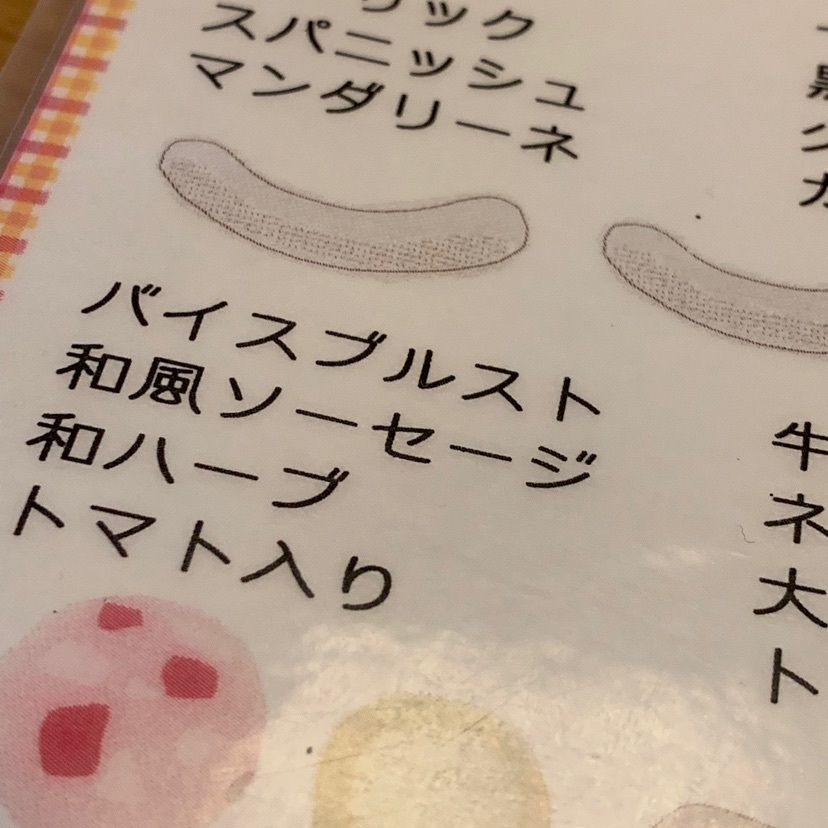 リック
スパニッシュ
マンダリーネ
バイスブルスト
和風ソーセージ
和ハーブ
トマト入り
牛
ネ
大
ト